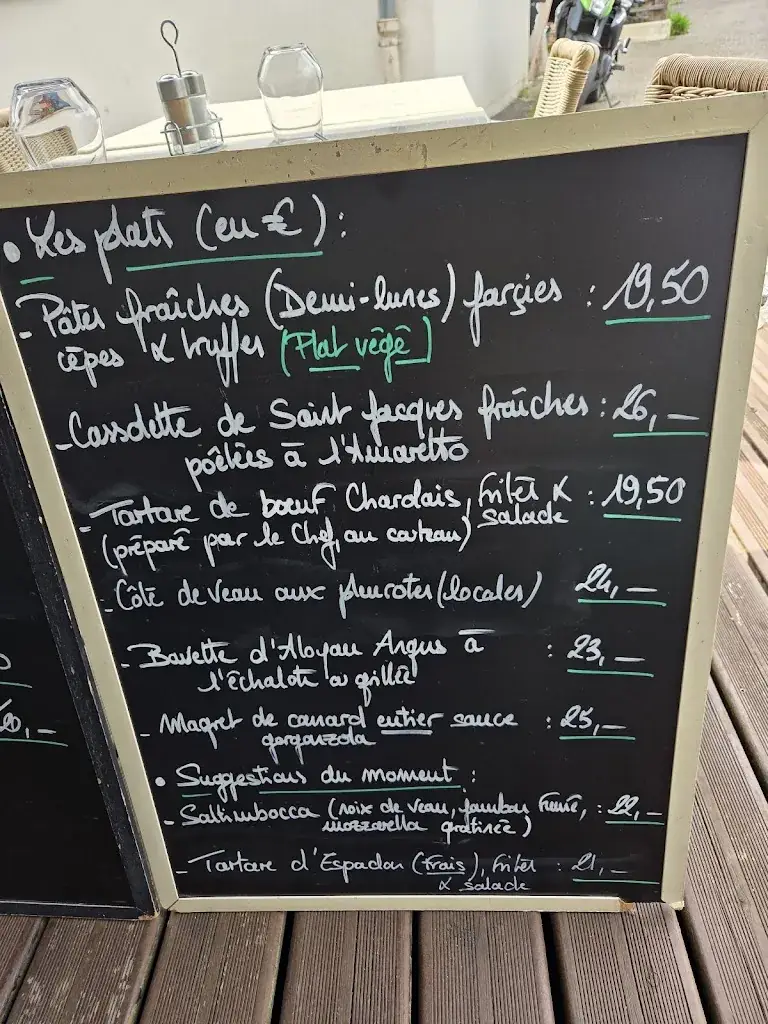 • Les plats (en €) :
- Pâtes fraîches (Demi-lunes) farçies : 19,50
cêpes & truffes (Plat végé)
- Cassolette de Saint Jacques fraîches : 26,—
poêlées à l'Amaretto
- Tartare de boeuf Charolais, frites & : 19,50
salade
(préparé par le Chef, au couteau)
- Côte de Veau aux pleurotes (locales) 24,—
- Bavette d'Aloyau Angus à : 23,—
l'échalote ou grillée
- Magret de canard entier sauce : 25,—
gorgonzola
• Suggestions du moment :
- Saltimbocca (noix de veau, jambon fumé, : 22,—
mozzarella gratinée)
- Tartare d'Espadon (frais), frites : 21,—
& salade